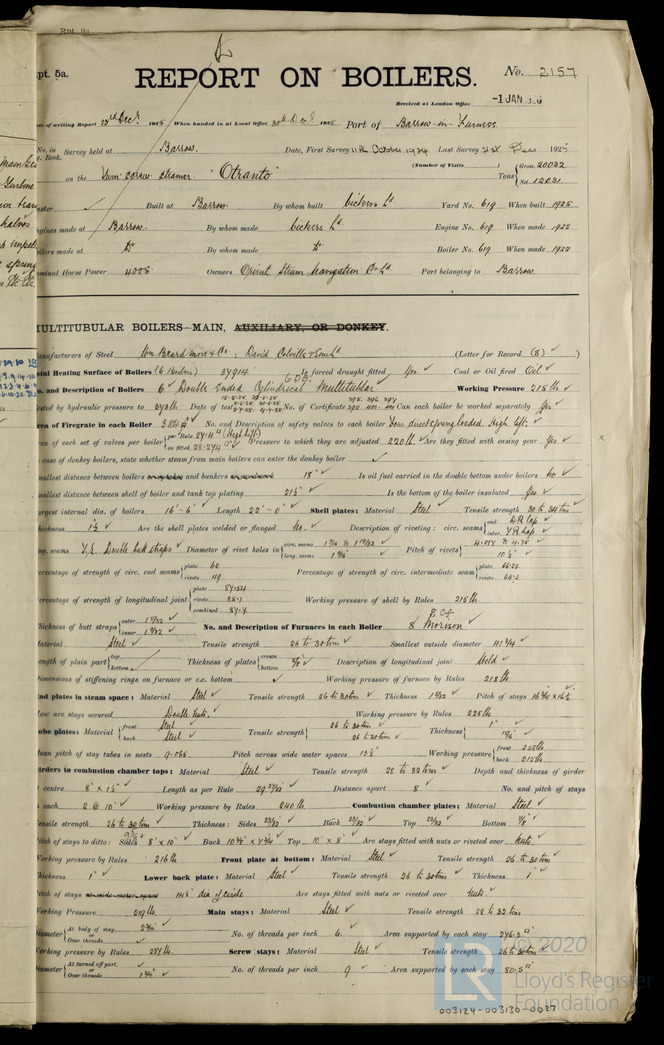 Rpt. 5a.
REPORT ON BOILERS.
No. 2157
Received at London Office -1 JAN 1926
Date of writing Report 23rd Decr 1925 When handed in at Local Office 30th Decr 1925 Port of Barrow-in-Furness
No. in Survey held at Barrow. Date, First Survey 11th October 1924 Last Survey 21st Decr 1925
Reg. Book. (Number of Visits
on the Twin screw steamer "Otranto" Tons {Gross 20032 Net 12031
Master Built at Barrow By whom built Vickers Ld Yard No. 619 When built 1925
Engines made at Barrow By whom made Vickers Ld. Engine No. 619 When made 1925
Boilers made at Do By whom made Do Boiler No. 619 When made 1925
Nominal Horse Power Owners Orient Steam Navigation Co Ld Port belonging to Barrow
MULTITUBULAR BOILERS—MAIN, AUXILIARY, OR DONKEY.
Manufacturers of Steel Wm Beardmore & Co : David Colville & Sons Ld (Letter for Record (S) )
Total Heating Surface of Boilers (6 Boilers) 37914 Is forced draught fitted Yes Coal or Oil fired Oil
No. and Description of Boilers 6 Double Ended Cylindrical Multitubular Working Pressure 215 lbs
Tested by hydraulic pressure to Date of test No. of Certificate Can each boiler be worked separately Yes
Area of Firegrate in each Boiler No. and Description of safety valves to each boiler Four direct spring loaded. High lift.
Area of each set of valves per boiler {per Rule 27.4 (High lift) as fitted 28.274 Pressure to which they are adjusted 220 lb Are they fitted with easing gear Yes
In case of donkey boilers, state whether steam from main boilers can enter the donkey boiler
Smallest distance between boilers or uptakes and bunkers or woodwork 18" Is oil fuel carried in the double bottom under boilers No
Smallest distance between shell of boiler and tank top plating 21½" Is the bottom of the boiler insulated Yes
Largest internal dia. of boilers 16'-6" Length 22'-0" Shell plates: Material Steel Tensile strength 30 to 34 tons
Thickness 1½ Are the shell plates welded or flanged No. Description of riveting: circ. seams {end D.R lap inter. T.R lap
long. seams T.R. Double butt straps Diameter of rivet holes in {circ. seams long. seams Pitch of rivets{ 10½
Percentage of strength of circ. end seams {plate 60 rivets 49 Percentage of strength of circ. intermediate seam {plate 66.25 rivets 60.2
Percentage of strength of longitudinal joint {plate rivets 85.1 combined 87.4 Working pressure of shell by Rules 215 lb
Thickness of butt straps {outer inner No. and Description of Furnaces in each Boiler 8 Morison
Material Steel Tensile strength 26 to 30 tons Smallest outside diameter
Length of plain part {top bottom Thickness of plates {crown bottom Description of longitudinal joint Weld
Dimensions of stiffening rings on furnace or c.c. bottom Working pressure of furnace by Rules 218 lb
End plates in steam space: Material Steel Tensile strength 26 to 30 tons Thickness Pitch of stays 16¾ x 16½
How are stays secured Double Nuts. Working pressure by Rules 225 lb
Tube plates: Material {front Steel back Steel Tensile strength{ 26 to 30 tons 26 to 30 tons Thickness{ 1"
Mean pitch of stay tubes in nests 9.065 Pitch across wide water spaces 13½ Working pressure {front back
Girders to combustion chamber tops: Material Steel Tensile strength 28 to 32 tons Depth and thickness of girder
at centre 8" x 1½ Length as per Rule 29 27/32 Distance apart 8" No. and pitch of stays
in each 2 @ 10" Working pressure by Rules 240 lb Combustion chamber plates: Material Steel
Tensile strength 26 to 30 tons Thickness: Sides 23/32 Back 23/32 Top 23/32 Bottom 7/8
Pitch of stays to ditto: Sides 8" x 10" Back Top 10" x 8" Are stays fitted with nuts or riveted over Nuts.
Working pressure by Rules 216 lb Front plate at bottom: Material Steel Tensile strength 26 to 30 tons
Thickness 1" Lower back plate: Material Steel Tensile strength 26 to 30 tons Thickness 1"
Pitch of stays at wide water space dia of circle Are stays fitted with nuts or riveted over Nuts.
Working Pressure 219 lb. Main stays: Material Steel Tensile strength 28 to 32 tons
Diameter {At body of stay, or Over threads No. of threads per inch 6. Area supported by each stay 276.3
Working pressure by Rules Screw stays: Material Steel Tensile strength 26 to 30 tons
Diameter {At turned off part, or Over threads 1¾ No. of threads per inch 9 Area supported by each stay 80.5
© 2020
LR
Lloyd's Register
Foundation
003124-003130-0027